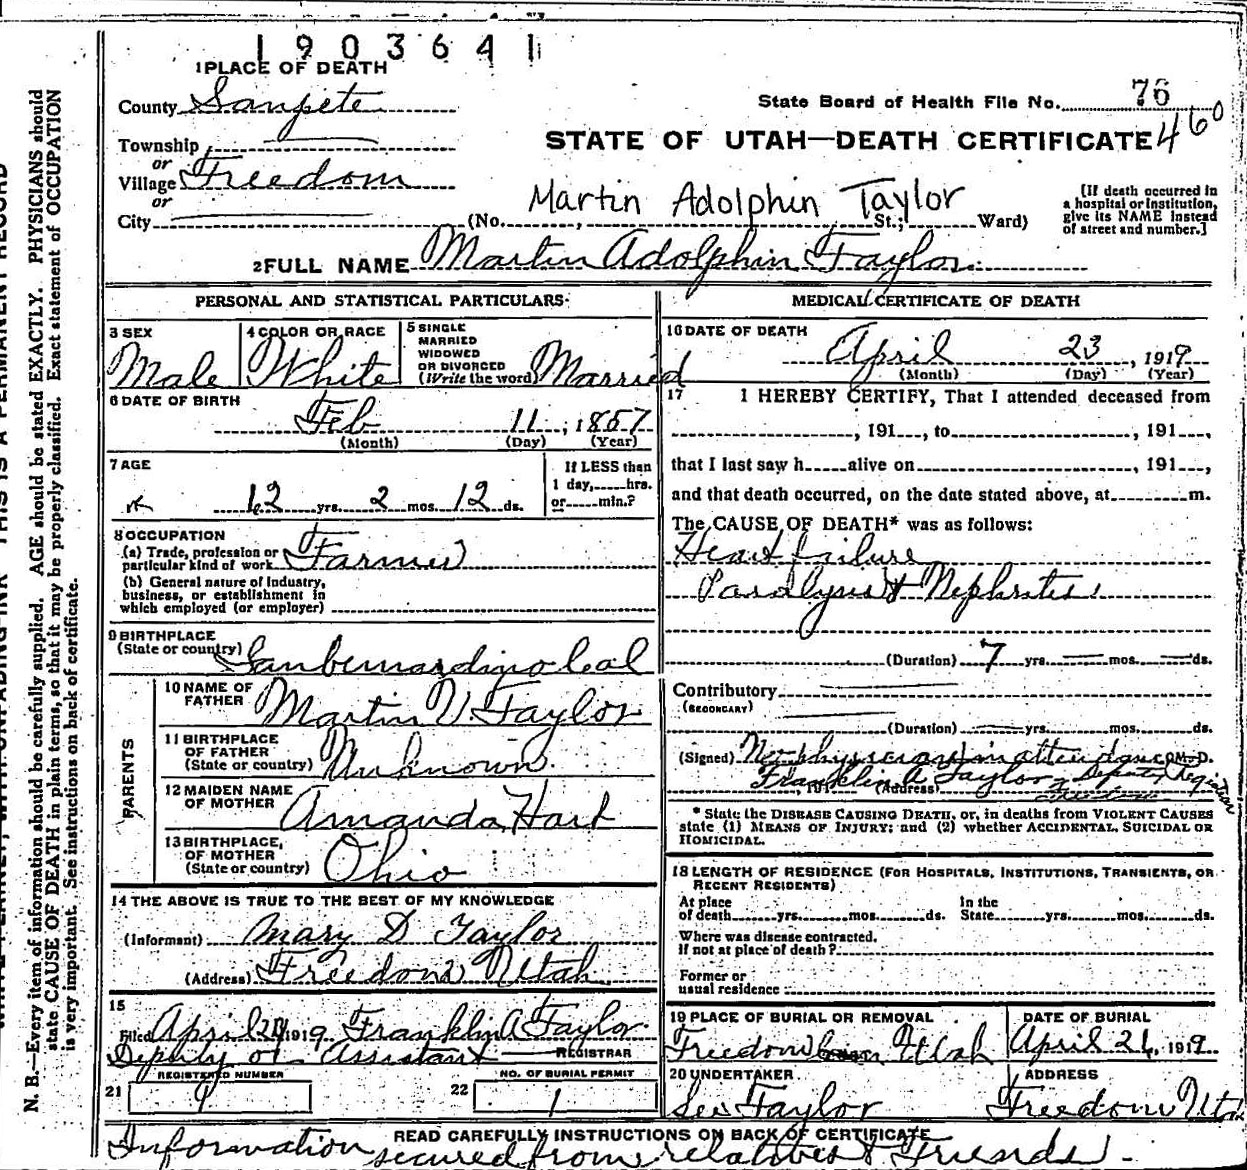 1903641
1 PLACE OF DEATH
County Sanpete
State Board of Health File No. 76
460
Township
or
Village Freedom
or
City
STATE OF UTAH—DEATH CERTIFICATE
Martin Adolphin Taylor
(No. St.; Ward)
[If death occurred in
a hospital or institution,
give its NAME instead
of street and number.]
2 FULL NAME Martin Adolphin Taylor
PERSONAL AND STATISTICAL PARTICULARS
3 SEX
Male
4 COLOR OR RACE
White
5 SINGLE
MARRIED
WIDOWED
OR DIVORCED
(Write the word) Married
6 DATE OF BIRTH
Feb 11, 1857
(Month) (Day) (Year)
7 AGE
62 yrs. 2 mos. 12 ds.
If LESS than
1 day, hrs.
or min.?
8 OCCUPATION
(a) Trade, profession or
particular kind of work Farmer
(b) General nature of Industry,
business, or establishment in
which employed (or employer)
9 BIRTHPLACE
(State or country) Sanbernardino Cal
PARENTS
10 NAME OF
FATHER Martin V. Taylor
11 BIRTHPLACE
OF FATHER
(State or country) Unknown
12 MAIDEN NAME
OF MOTHER Amanda Hart
13 BIRTHPLACE,
OF MOTHER
(State or country) Ohio
14 THE ABOVE IS TRUE TO THE BEST OF MY KNOWLEDGE
(Informant) Mary D Taylor
(Address) Freedom Utah
15
Filed April 1919 Franklin A Taylor
Deputy or Assistant REGISTRAR
REGISTERED NUMBER
21
NO. OF BURIAL PERMIT
22 1
MEDICAL CERTIFICATE OF DEATH
16 DATE OF DEATH
April 23, 1919
(Month) (Day) (Year)
17 I HEREBY CERTIFY, That I attended deceased from
, 191 , to , 191 ,
that I last saw h alive on , 191 ,
and that death occurred, on the date stated above, at m.
The CAUSE OF DEATH* was as follows:
Heart failure
Paralysis & Nephrites
(Duration) 7 yrs. mos. ds.
Contributory
(SECONDARY)
(Duration) yrs. mos. ds.
(Signed) No physician in attendance M.D.
Franklin A Taylor Deputy Registrar
, 191 (Address) Freedom
* State the DISEASE CAUSING DEATH, or, in deaths from VIOLENT CAUSES
state (1) MEANS OF INJURY; and (2) whether ACCIDENTAL, SUICIDAL OR
HOMICIDAL.
18 LENGTH OF RESIDENCE (FOR HOSPITALS, INSTITUTIONS, TRANSIENTS, OR
RECENT RESIDENTS)
At place In the
of death yrs. mos. ds. State yrs. mos. ds.
Where was disease contracted.
If not at place of death?
Former or
usual residence
19 PLACE OF BURIAL OR REMOVAL
Freedom Utah
DATE OF BURIAL
April 26, 1919
20 UNDERTAKER
Taylor
ADDRESS
Freedom Utah
READ CAREFULLY INSTRUCTIONS ON BACK OF CERTIFICATE
Information secured from relatives & Friends.
N. B.—Every item of information should be carefully supplied. AGE should be stated EXACTLY. PHYSICIANS should
state CAUSE OF DEATH in plain terms, so that it may be properly classified. Exact statement of OCCUPATION
is very important. See instructions on back of certificate.